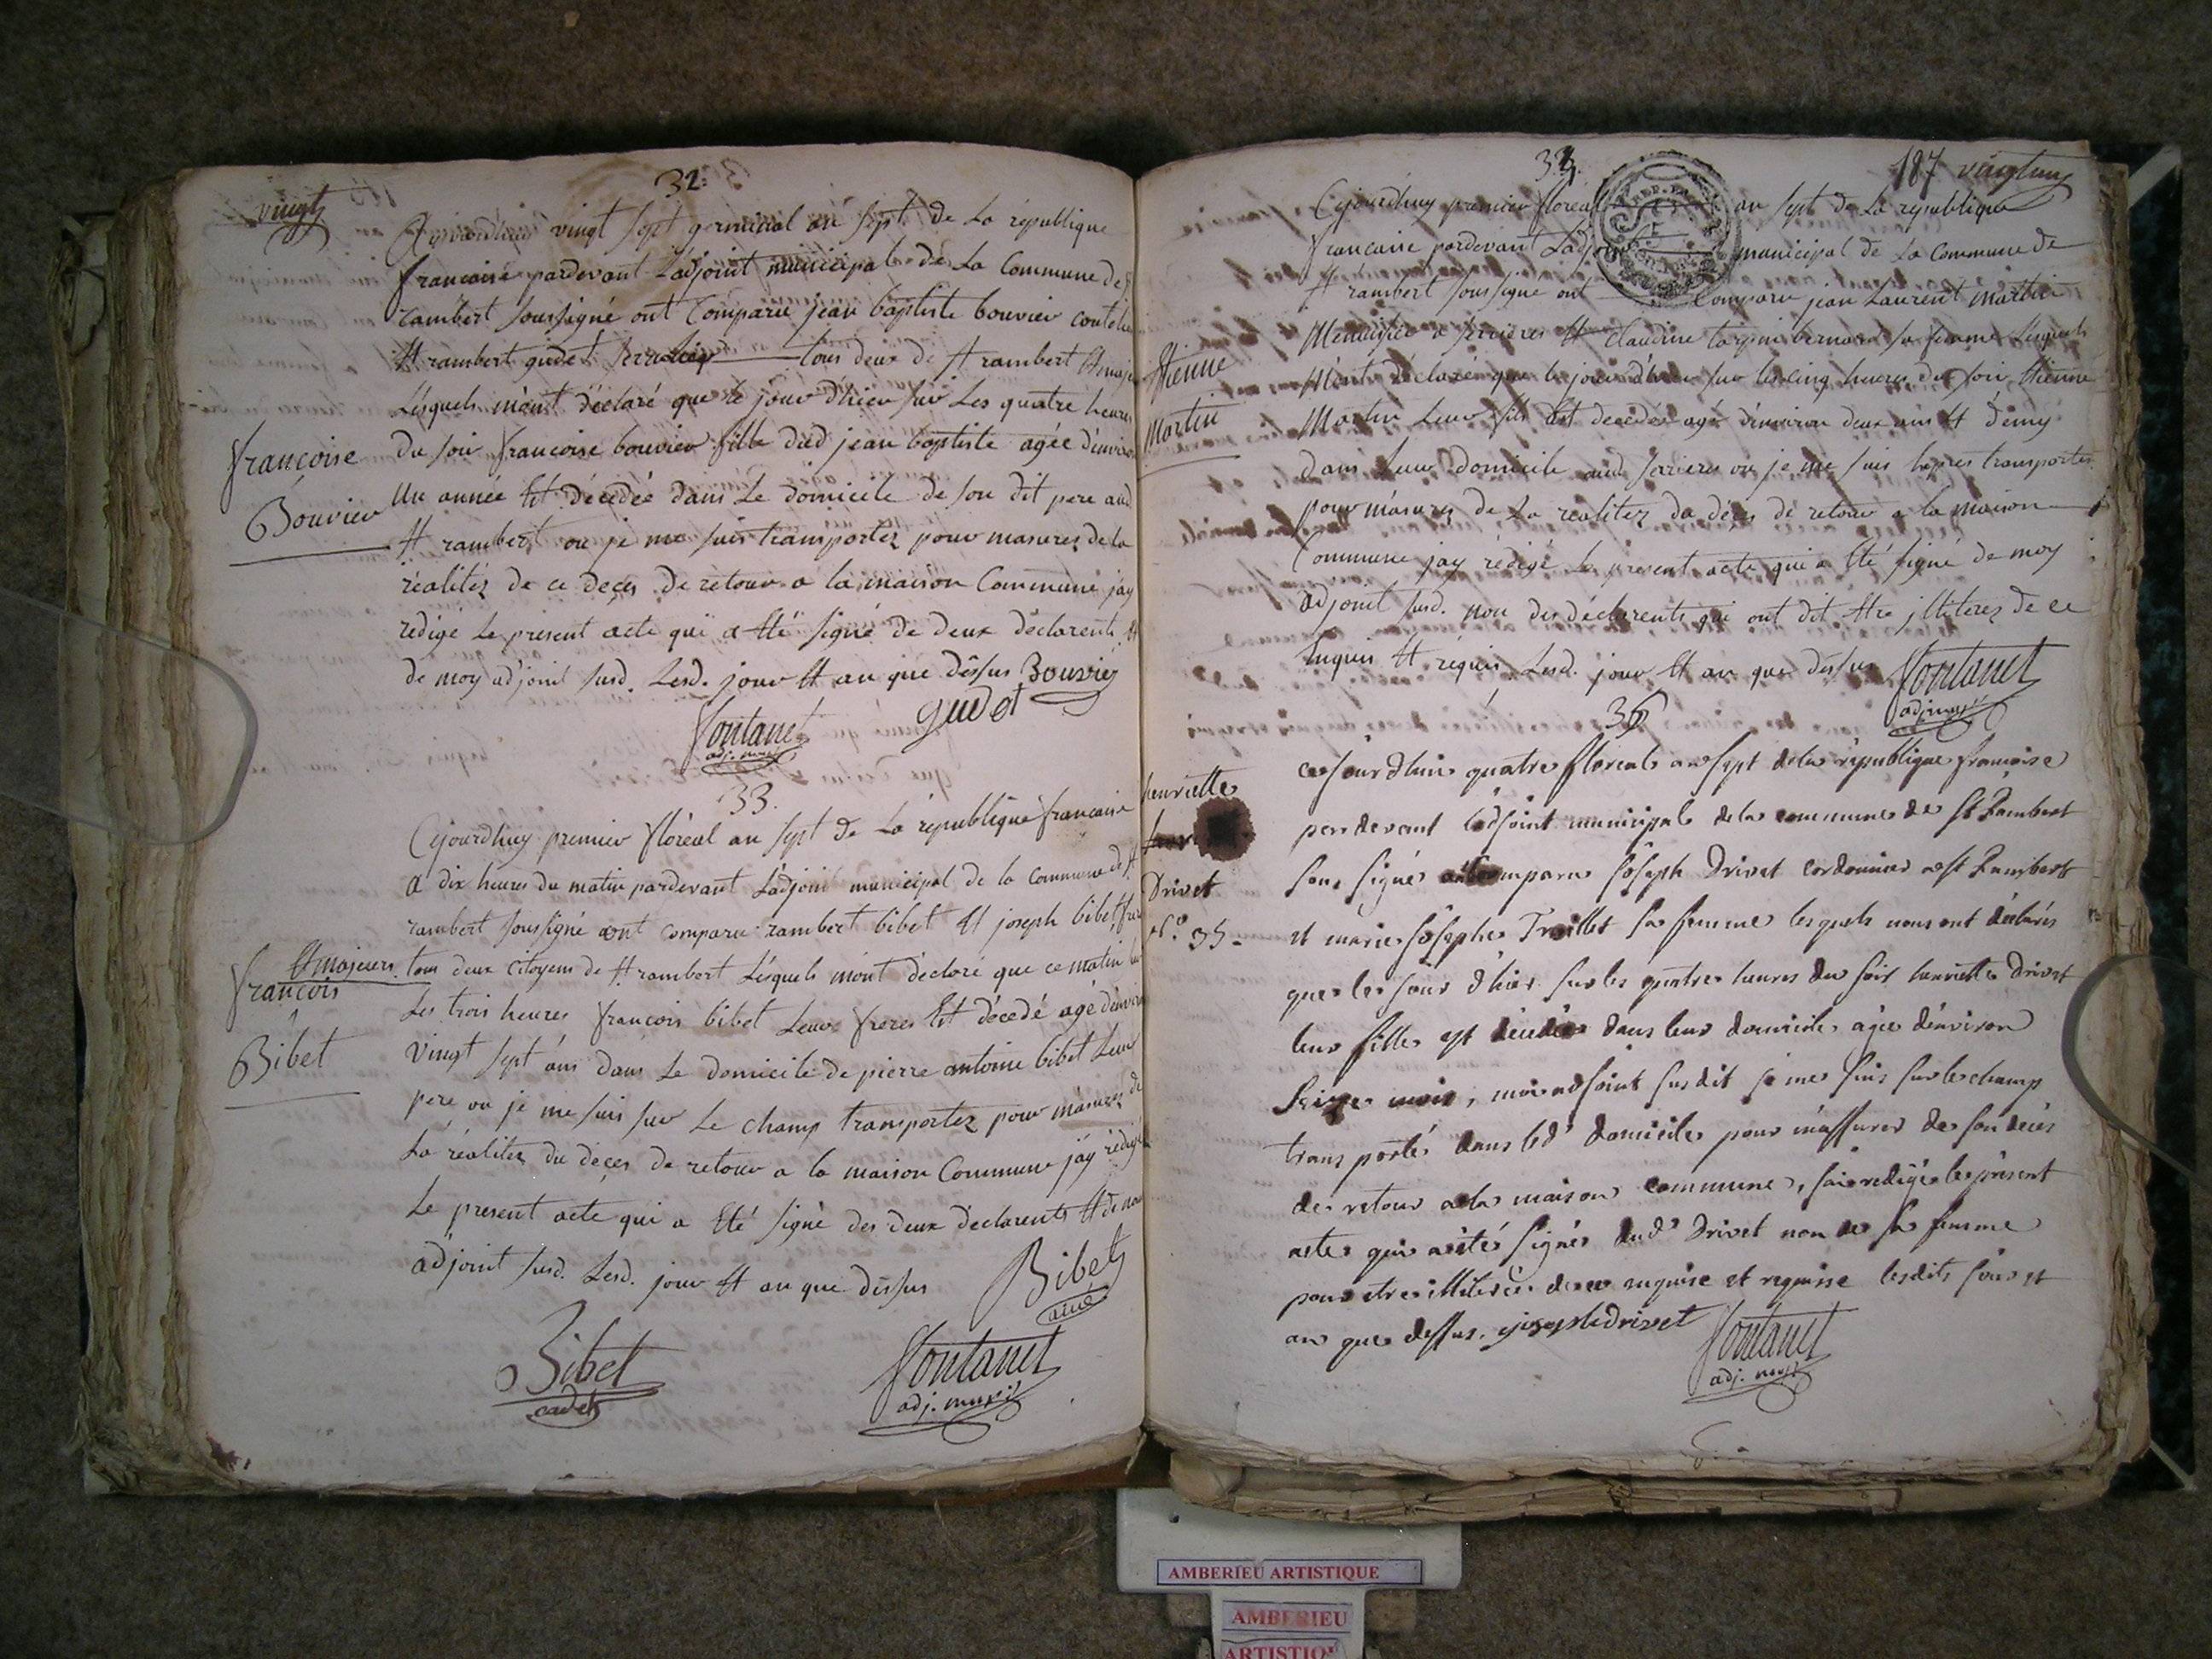 vingt
32
Cejourdhuy vingt sept germinal an sept de La république
francaise pardevant Ladjoint municipal de La Commune de
rambert soussigné ont Comparu jean baptiste bouvier
St rambert gudet tous deux de St rambert Et
Lesquels mont déclaré que le jour d'hier sur Les quatre heures
françoise
Bouvier
Du soir francoise bouvier fille dud jean baptiste agée d'environ
un année Est décédée dans Le domicile de son dit pere aud
St rambert ou je me suis transportez pour masurez de la
réalitéz de ce deces de retour a la maison Commune jay
redige Le present acte qui a Eté signé de deux déclarents Et
de moy adjoint susd. Lesd. jour Et an que dessus Bouvier
gudet
fontanet
adj. muni
33.
Cejourdhuy premier floréal an sept de La république francaise
a dix heures du matin pardevant Ladjoint municipal de la Commune de St
rambert soussigné ont comparu rambert bibet Et joseph bibet
Et majeurs. tous deux citoyens de St rambert Lesquels mont déclaré que ce matin
françois
Bibet
Les trois heures francois bibet Leur freres Est décedé agé d'environ
vingt sept ans dans Le domicile de pierre antoine bibet Leur
pere ou je me suis sur Le champ transportez pour masurez de
La réalitéz du deces de retour a la maison Commune jay rédigé
Le present acte qui a Eté signé des deux déclarents Et de
adjoint susd. Lesd. jour Et an que dessus
Bibet
ainé
Bibet
cadet
fontanet
adj. muni
187 vingtun
Cejourdhuy premier floréal an sept de La republique
francaise pardevant Ladjoint municipal de La Commune de
St rambert soussigné ont Comparu jean Laurent Martin
a Serrieres Et Claudine bernard sa femme Lesquels
Etienne
Martin
Mont déclaré que le jour d'hier sur les cinq heures du soir Etienne
Martin Leur fils Est décédé agé d'environ deux ans Et demy
dans Leur domicile aud ou je me suis transportez
pour masurez de La réalitez du deces de retour a la maison
Commune jay rédigé Le present acte qui a Eté signé de moy
adjoint susd. non des déclarents qui ont dit Etre illiterez de ce
Enquis Et requis Lesd. jour Et an que dessus
fontanet
adj. muni
36
henriette
Drivet
N.º 35.
cejourdhui quatre floréal an sept de la république françoise
par devant l'adjoint municipal de la commune de St Rambert
sous signé ont comparu joseph Drivet cordonnier a St Rambert
et marie josephe Traillet sa femme lesquels nous ont déclarés
que le jour d'hier sur les quatre heures du soir henriette Drivet
leur fille est décédée dans leur domicile, agée d'environ
seize mois, moi adjoint susdit je me suis sur le champ
transporté dans led.t domicile pour m'assurer de son décès
de retour a la maison commune, j'ai redigé le présent
acte qui a été signé dud.t Drivet non de sa femme
pour etre illiterée de ce enquise et requise lesdits jour et
an que dessus. joseph drivet
fontanet
adj. muni
AMBERIEU ARTISTIQUE
AMBERIEU
ARTISTIQU